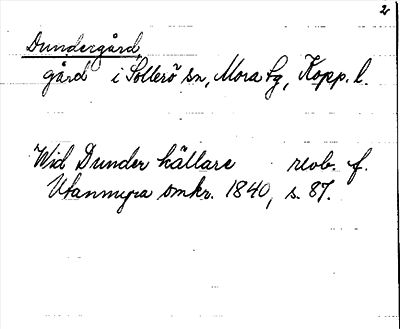 2
Dundergård,
gård i Sollerö sn, Mora tg, Kopp. l.
Wid Dunder källare rev. f.
Utanmyra omkr. 1840, s. 87.